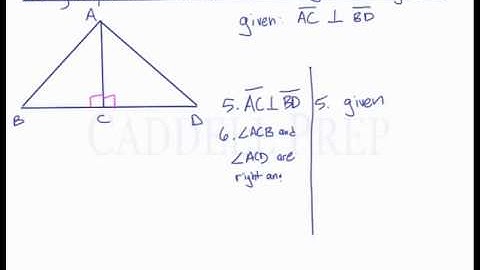 given: AC ⊥ BD
A
B
C
D
5. AC ⊥ BD
5. given
6. ∠ACB and
∠ACD are
right ang
CADDELL PREP